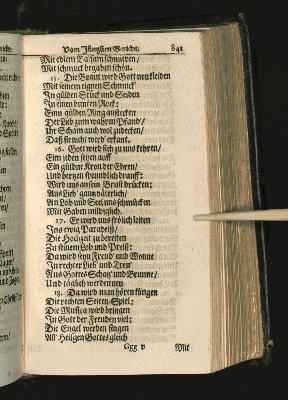 Vom Jüngsten Gericht. 841
Mit edlem Balsam schmieren/
Mit schmuck begaben schon.
15. Die Braut wird Gott neu kleiden
Mit seinem eignen Schmuck
In gülden Stück und Seiden
In einen bunten Rock:
Einn gülden Ring anstecken
Der Lieb zum wahren Pfand/
Ihr Scham auch wol zudecken/
Daß sie nicht werd erkant.
16. Gott wird sich zu uns kehren/
Ein jeden setzen auff
Ein güldne Kron der Ehren/
Und hertzen freundlich drauff:
Wird uns an sein Brust drücken:
Aus Lieb gantz väterlich/
An Leib und Seel uns schmücken
Mit Gaben mildiglich.
17. Er wird uns frölich leiten
Ins ewig Paradeiß/
Die Hochzeit zu bereiten
Zu seinem Lob und Preiß:
Da wird seyn Freud und Wonne
In rechter Lieb und Treu
Aus Gottes Schatz und Brunne/
Und täglich werden neu
18. Da wird man hören klingen
Die rechten Seiten-Spiel:
Die Musica wird bringen
In Gott der Freuden viel:
Die Engel werden singen
All Heilgen Gottes gleich
Ggg v Mit